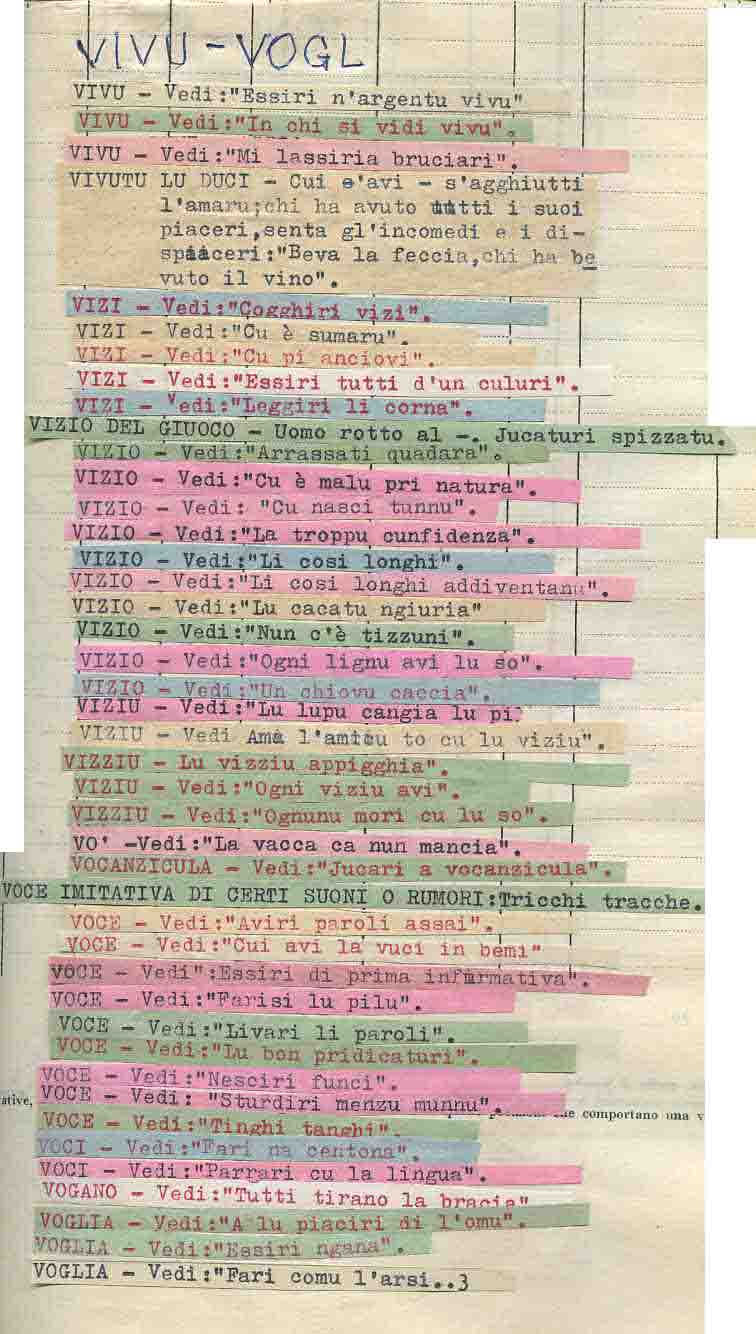 VIVU - VOGL
VIVU - Vedi:"Essiri n'argentu vivu"
VIVU - Vedi:"In chi si vidi vivu".
VIVU - Vedi:"Mi lassiria bruciari".
VIVUTU LU DUCI - Cui e'avi - s'agghiutti
l'amaru;chi ha avuto tutti i suoi
piaceri,senta gl'incomedi e i di-
spiaceri:"Beva la feccia,chi ha be
vuto il vino".
VIZI - Vedi:"Cogghiri vizi".
VIZI - Vedi:"Cu è sumaru".
VIZI - Vedi:"Cu pi anciovi".
VIZI - Vedi:"Essiri tutti d'un culuri".
VIZI - Vedi:"Leggiri li corna".
VIZIO DEL GIUOCO - Uomo rotto al -. Jucaturi spizzatu.
VIZIO - Vedi:"Arrassati quadara".
VIZIO - Vedi:"Cu è malu pri natura".
VIZIO - Vedi: "Cu nasci tunnu".
VIZIO - Vedi:"La troppu cunfidenza".
VIZIO - Vedi:"Li cosi longhi".
VIZIO - Vedi:"Li cosi longhi addiventanu".
VIZIO - Vedi:"Lu cacatu ngiuria"
VIZIO - Vedi:"Nun c'è tizzuni".
VIZIO - Vedi:"Ogni lignu avi lu so".
VIZIO - Vedi:"Un chiovu caccia".
VIZIU - Vedi:"Lu lupu cangia lu pi
VIZIU - Vedi Ama l'amicu to cu lu viziu".
VIZZIU - Lu vizziu appigghia".
VIZIU - Vedi:"Ogni viziu avi".
VIZZIU - Vedi:"Ognunu mori cu lu so".
VO' -Vedi:"La vacca ca nun mancia".
VOCANZICULA - Vedi:"Jucari a vocanzicula".
VOCE IMITATIVA DI CERTI SUONI O RUMORI:Tricchi tracche.
VOCE - Vedi:"Aviri paroli assai".
VOCE - Vedi:"Cui avi la vuci in bemi"
VOCE - Vedi":Essiri di prima infurmativa".
VOCE - Vedi:"Farisi lu pilu".
VOCE - Vedi:"Livari li paroli".
VOCE - Vedi:"Lu bon pridicaturi".
VOCE - Vedi:"Nesciri funci".
ative,
VOCE - Vedi: "Sturdiri menzu munnu".
comportano una v
VOCE - Vedi:"Tinghi tanghi".
VOCI - Vedi:"Fari na centona".
VOCI - Vedi:"Parrari cu la lingua".
VOGANO - Vedi:"Tutti tirano la bracia"
VOGLIA - Vedi:"A lu piaciri di l'omu".
VOGLIA - Vedi:"Essiri ngana".
VOGLIA - Vedi:"Fari comu l'arsi..3